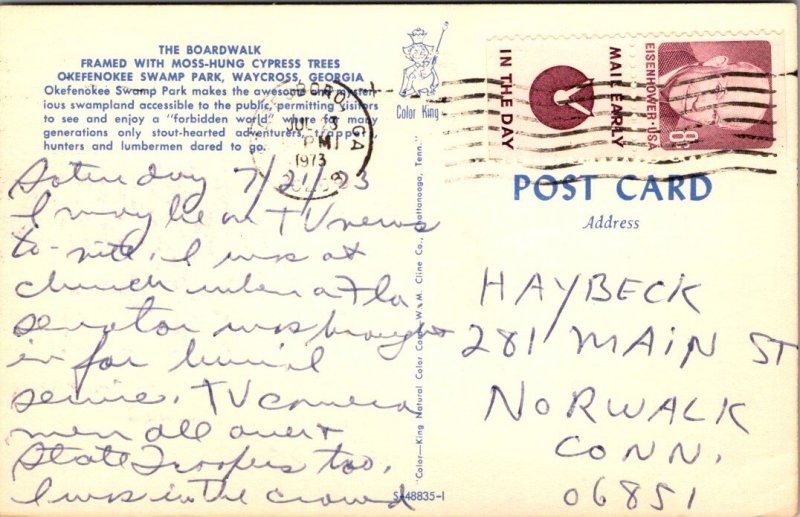 THE BOARDWALK
FRAMED WITH MOSS-HUNG CYPRESS TREES
OKEFENOKEE SWAMP PARK, WAYCROSS, GEORGIA
Okefenokee Swamp Park makes the awesome and myster-
ious swampland accessible to the public, permitting visitors
to see and enjoy a "forbidden world" where for many
generations only stout-hearted adventurers, trappers
hunters and lumbermen dared to go.
Color King
BORO, GA
JUL
PM
1973
Saturday 7/21/73
I may be on TV news
to-nite. I was at
church when a Fla
senator was brought
in for burial
service. TV camera
men all over &
State Troopers too.
I was in the crowd
"Color-King Natural Color Card, W. M. Cline Co., Chattanooga, Tenn."
S-48835-1
IN THE DAY
MAIL EARLY
EISENHOWER·USA
8
POST CARD
Address
HAYBECK
281 MAIN ST
NORWALK
CONN.
06851